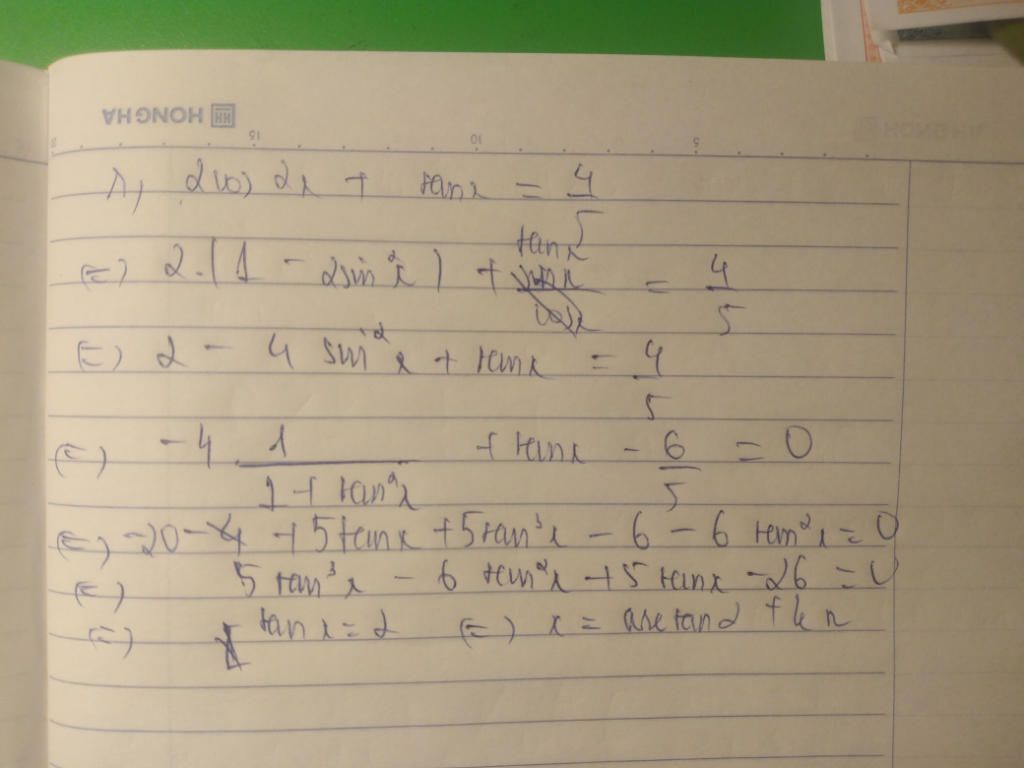 HONG HA
15 10 5
1, 2cos 2x + tanx = 4/5
(=) 2.(1 - 2sin²x) + tanx = 4/5
(=) 2 - 4 sin²x + tanx = 4/5
(=) -4 1/(1 + tan²x) + tanx - 6/5 = 0
(=) -20 + 5tanx + 5tan³x - 6 - 6 tan²x = 0
(=) 5 tan³x - 6 tan²x + 5 tanx - 26 = 0
(=) tan x = 2 (=) x = arctan2 + kπ